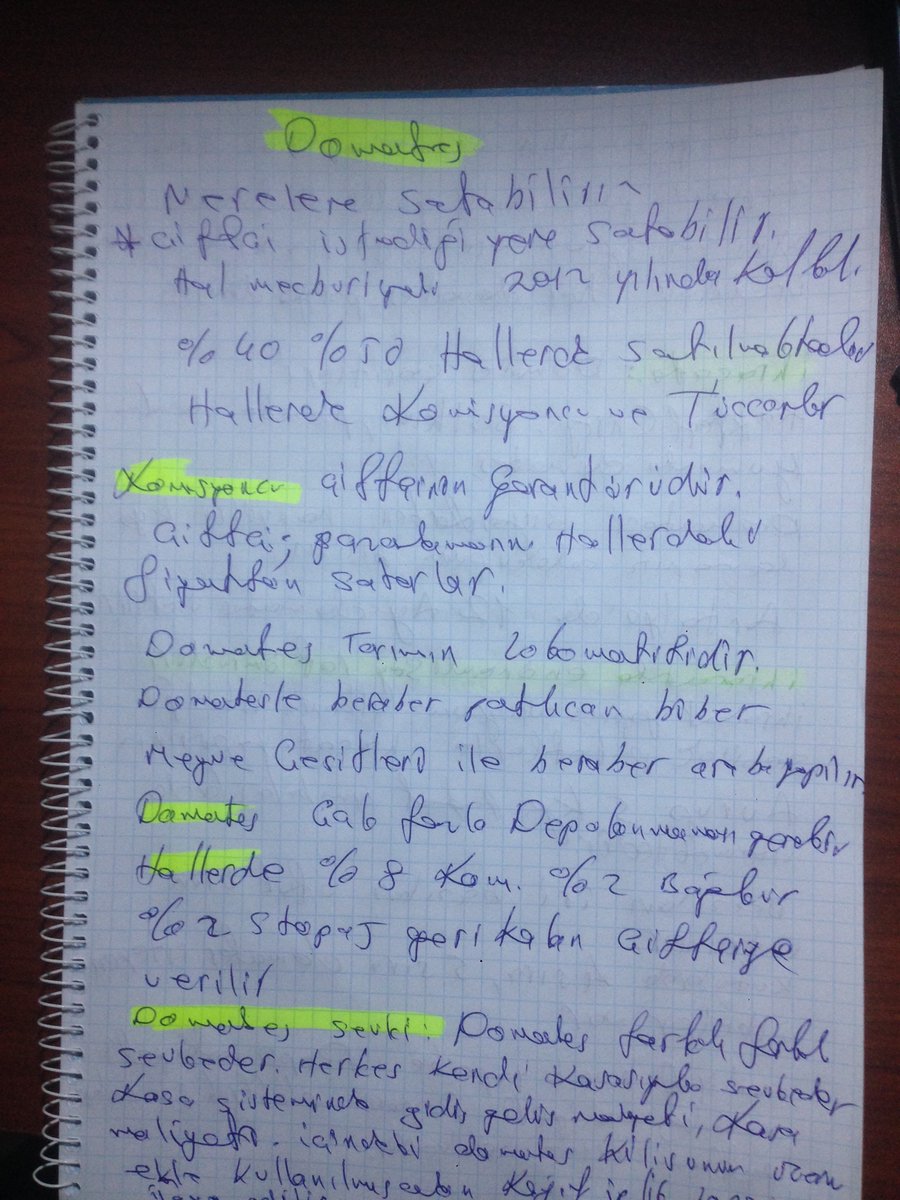 Domates
Nerelere satabilir
* Çiftçi istediği yere satabilir.
Hal mecburiyeti 2012 yılında kalktı.
%40 %50 Hallerde satılmaktadır
Hallerde Komisyoncu ve Tüccarlar
Komisyoncu çiftçinin Garantörüdür.
Çiftçi; Hallerdeki
fiyattan satarlar.
Domates Tarımın lokomatifidir.
Domatesle beraber patlıcan biber
Meyve Çeşitleri ile beraber araba yapılır
Domates Çok fazla Depolanmaması gerekir
Hallerde %8 Kom. %2 Bağkur
%2 Stopaj geri kalan çiftçiye
verilir
Domates sevki: Domates farklı farklı
sevkeder. Herkes Kendi Kasasıyla sevkeder
Kasa sisteminde gidiş geliş Kasa
maliyeti. içindeki domates kilosunun
Kağıt